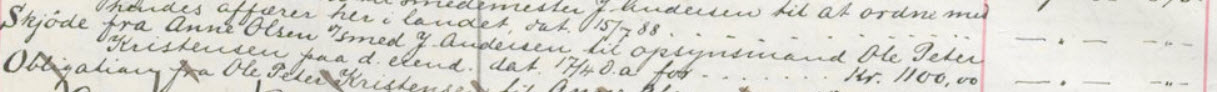 hendes affærer her i landet, dat. 15/7 88.
smedemester J. Andersen til at ordne med
Skjöde fra Anne Olsen v/smed J. Andersen til opsynsmand Ole Peter
Kristensen paa d. eiend. dat. 17/4 d.a. for . . . . . . . Kr. 1100,00
Obligation fra Ole Peter Kristensen til Anne